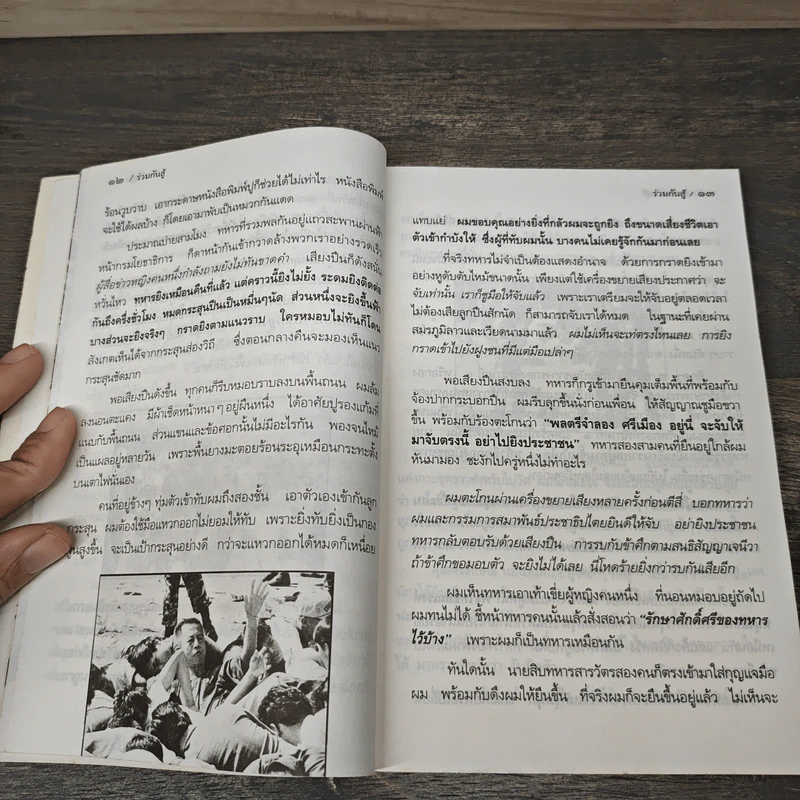 ๑๒ / ร่วมกันสู้
ร้อนวูบวาบ เอากระดาษหนังสือพิมพ์ปูก็ช่วยได้ไม่เท่าไร หนังสือพิมพ์
จะใช้ได้ผลบ้าง ก็โดยเอามาพับเป็นหมวกกันแดด
ประมาณบ่ายสามโมง ทหารที่รวมพลกันอยู่แถวสะพานผ่านฟ้า
หน้ากรมโยธาธิการ ก็ดาหน้ากันเข้ากวาดล้างพวกเราอย่างรวดเร็ว
ผู้สื่อข่าวหญิงคนหนึ่งกำลังถามยังไม่ทันขาดคำ เสียงปืนก็ดังสนั่น
หวั่นไหว ทหารยิงเหมือนคืนที่แล้ว แต่คราวนี้ยิงไม่ยั้ง ระดมยิงติดต่อ
กันถึงครึ่งชั่วโมง หมดกระสุนปืนเป็นหมื่นๆนัด ส่วนหนึ่งจะยิงขึ้นฟ้า
บางส่วนจะยิงจริงๆ กราดยิงตามแนวราบ ใครหมอบไม่ทันก็โดน
สังเกตเห็นได้จากกระสุนส่องวิถี ซึ่งตอนกลางคืนจะมองเห็นแนว
กระสุนชัดมาก
พอเสียงปืนดังขึ้น ทุกคนก็รีบหมอบราบลงบนพื้นถนน ผมล้ม
ลงนอนตะแคง มีผ้าเช็ดหน้าหนาๆอยู่ผืนหนึ่ง ได้อาศัยปูรองแก้มที่
แนบกับพื้นถนน ส่วนแขนและข้อศอกนั้นไม่มีอะไรกัน พองจนไหม้
เป็นแผลอยู่หลายวัน เพราะพื้นยางมะตอยร้อนระอุเหมือนกระทะตั้ง
บนเตาไฟนั่นเอง
คนที่อยู่ข้างๆ ทุ่มตัวเข้าทับผมถึงสองชั้น เอาตัวเองเข้ากันลูก
กระสุน ผมต้องใช้มือแหวกออกไม่ยอมให้ทับ เพราะยิ่งทับยิ่งเป็นกอง
นูนสูงขึ้น จะเป็นเป้ากระสุนอย่างดี กว่าจะแหวกออกได้หมดก็เหนื่อย
ร่วมกันสู้ / ๑๓
แทบแย่ ผมขอบคุณอย่างยิ่งที่กลัวผมจะถูกยิง ถึงขนาดเสี่ยงชีวิตเอา
ตัวเข้ากำบังให้ ซึ่งผู้ที่ทับผมนั้น บางคนไม่เคยรู้จักกันมาก่อนเลย
ที่จริงทหารไม่จำเป็นต้องแสดงอำนาจ ด้วยการกราดยิงเข้ามา
อย่างหูดับตับไหม้ขนาดนั้น เพียงแต่ใช้เครื่องขยายเสียงประกาศว่า จะ
จับเท่านั้น เราก็ชูมือให้จับแล้ว เพราะเราเตรียมจะให้จับอยู่ตลอดเวลา
ไม่ต้องเสียลูกปืนสักนัด ก็สามารถจับเราได้หมด ในฐานะที่เคยผ่าน
สมรภูมิลาวและเวียดนามมาแล้ว ผมไม่เห็นจะเท่ตรงไหนเลย การยิง
กราดเข้าไปยังฝูงชนที่มีแต่มือเปล่าๆ
พอเสียงปืนสงบลง ทหารก็กรูเข้ามายืนคุมเต็มพื้นที่พร้อมกับ
จ้องปากกระบอกปืน ผมรีบลุกขึ้นนั่งก่อนเพื่อน ให้สัญญาณชูมือขวา
ขึ้น พร้อมกับร้องตะโกนว่า “พลตรีจำลอง ศรีเมือง อยู่นี่ จะจับให้
มาจับตรงนี้ อย่าไปยิงประชาชน” ทหารสองสามคนที่ยืนอยู่ใกล้ผม
หันมามอง ชะงักไปครู่หนึ่งไม่ทำอะไร
ผมตะโกนผ่านเครื่องขยายเสียงหลายครั้งก่อนตีสี่ บอกทหารว่า
ผมและกรรมการสมาพันธ์ประชาธิปไตยยินดีให้จับ อย่ายิงประชาชน
ทหารกลับตอบรับด้วยเสียงปืน การรบกับข้าศึกตามสนธิสัญญาเจนีวา
ถ้าข้าศึกขอมอบตัว จะยิงไม่ได้เลย นี่โหดร้ายยิ่งกว่ารบกันเสียอีก
ผมเห็นทหารเอาเท้าเขี่ยผู้หญิงคนหนึ่ง ที่นอนหมอบอยู่ถัดไป
ผมทนไม่ได้ ชี้หน้าทหารคนนั้นแล้วสั่งสอนว่า “รักษาศักดิ์ศรีของทหาร
ไว้บ้าง” เพราะผมก็เป็นทหารเหมือนกัน
ทันใดนั้น นายสิบทหารสารวัตรสองคนก็ตรงเข้ามาใส่กุญแจมือ
ผม พร้อมกับดึงผมให้ยืนขึ้น ที่จริงผมก็จะยืนขึ้นอยู่แล้ว ไม่เห็นจะ